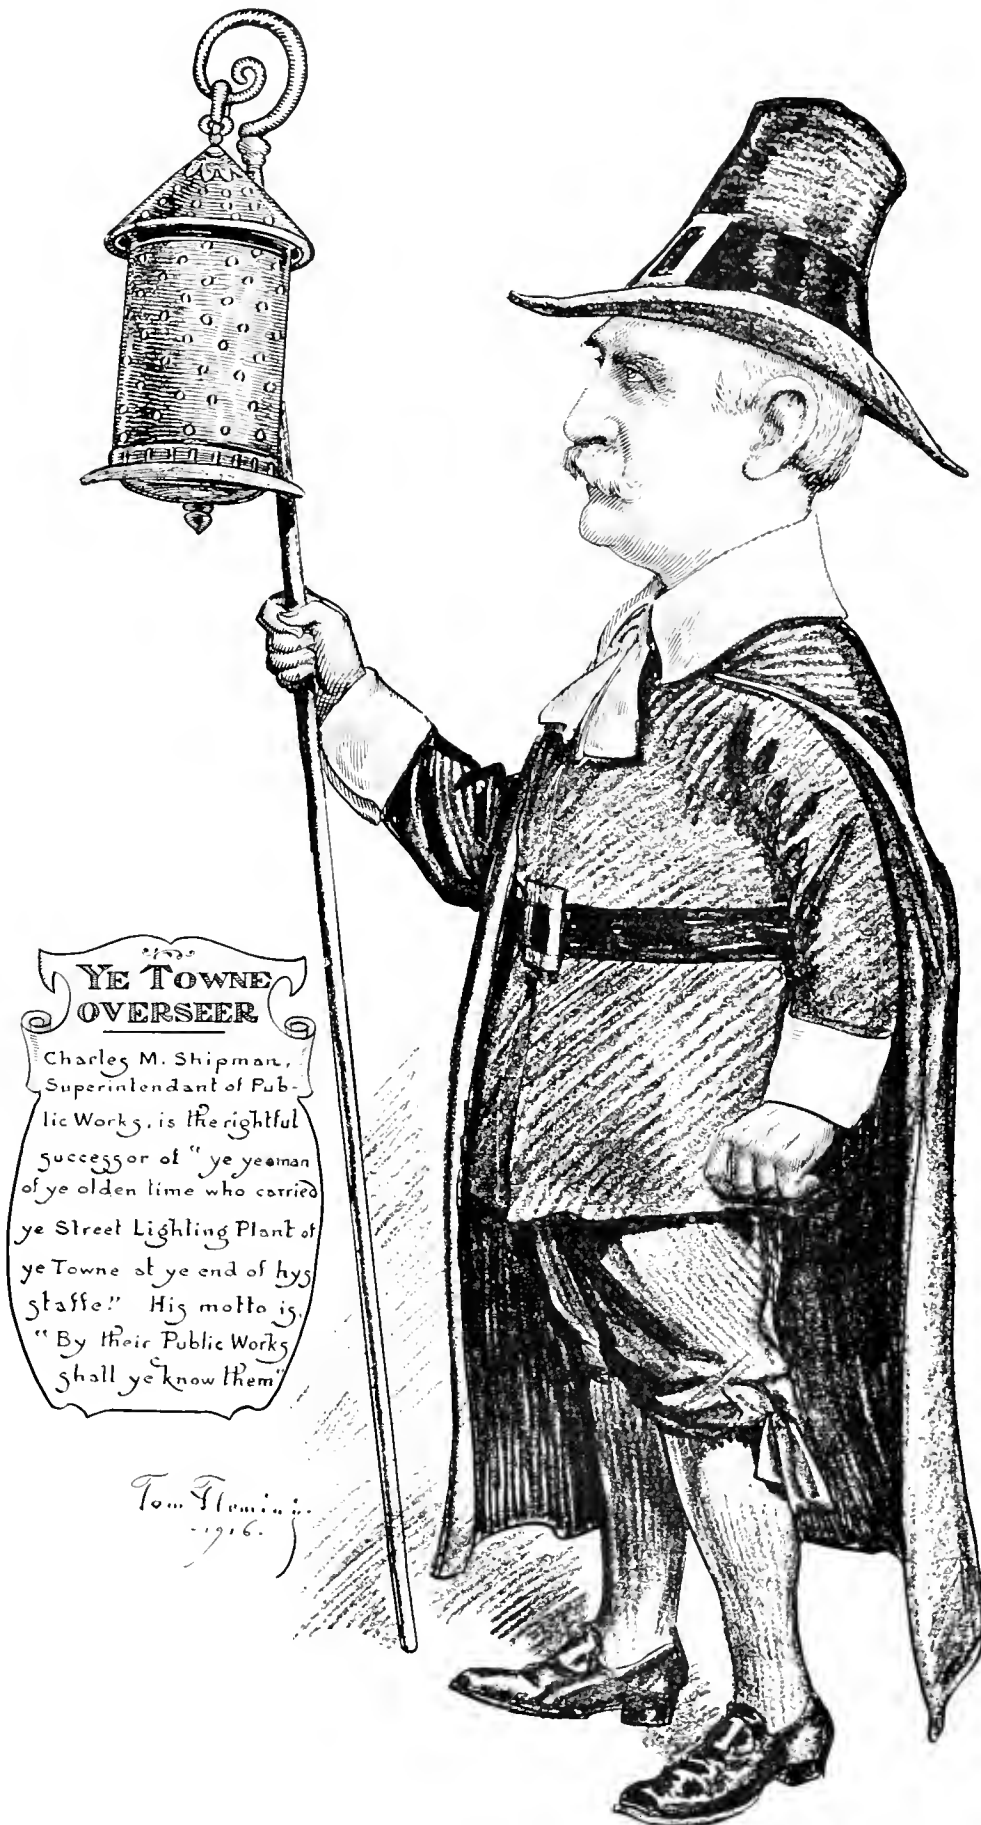 YE TOWNE
OVERSEER
Charles M. Shipman,
Superintendant of Pub-
lic Works, is the rightful
successor of "ye yeoman
of ye olden time who carried
ye Street Lighting Plant of
ye Towne at ye end of hys
staffe." His motto is,
"By their Public Works
shall ye know them"
Tom Fleming.
-1916.